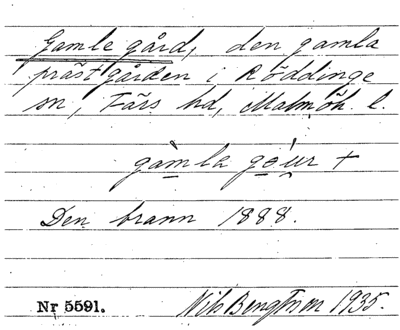 Gamle gård, den gamla
prästgården i Röddinge
sn, Färs hd, Malmöh. l.
gàmla gòur +
Den brann 1888.
Nr 5591. Nils Bengtsson 1935.